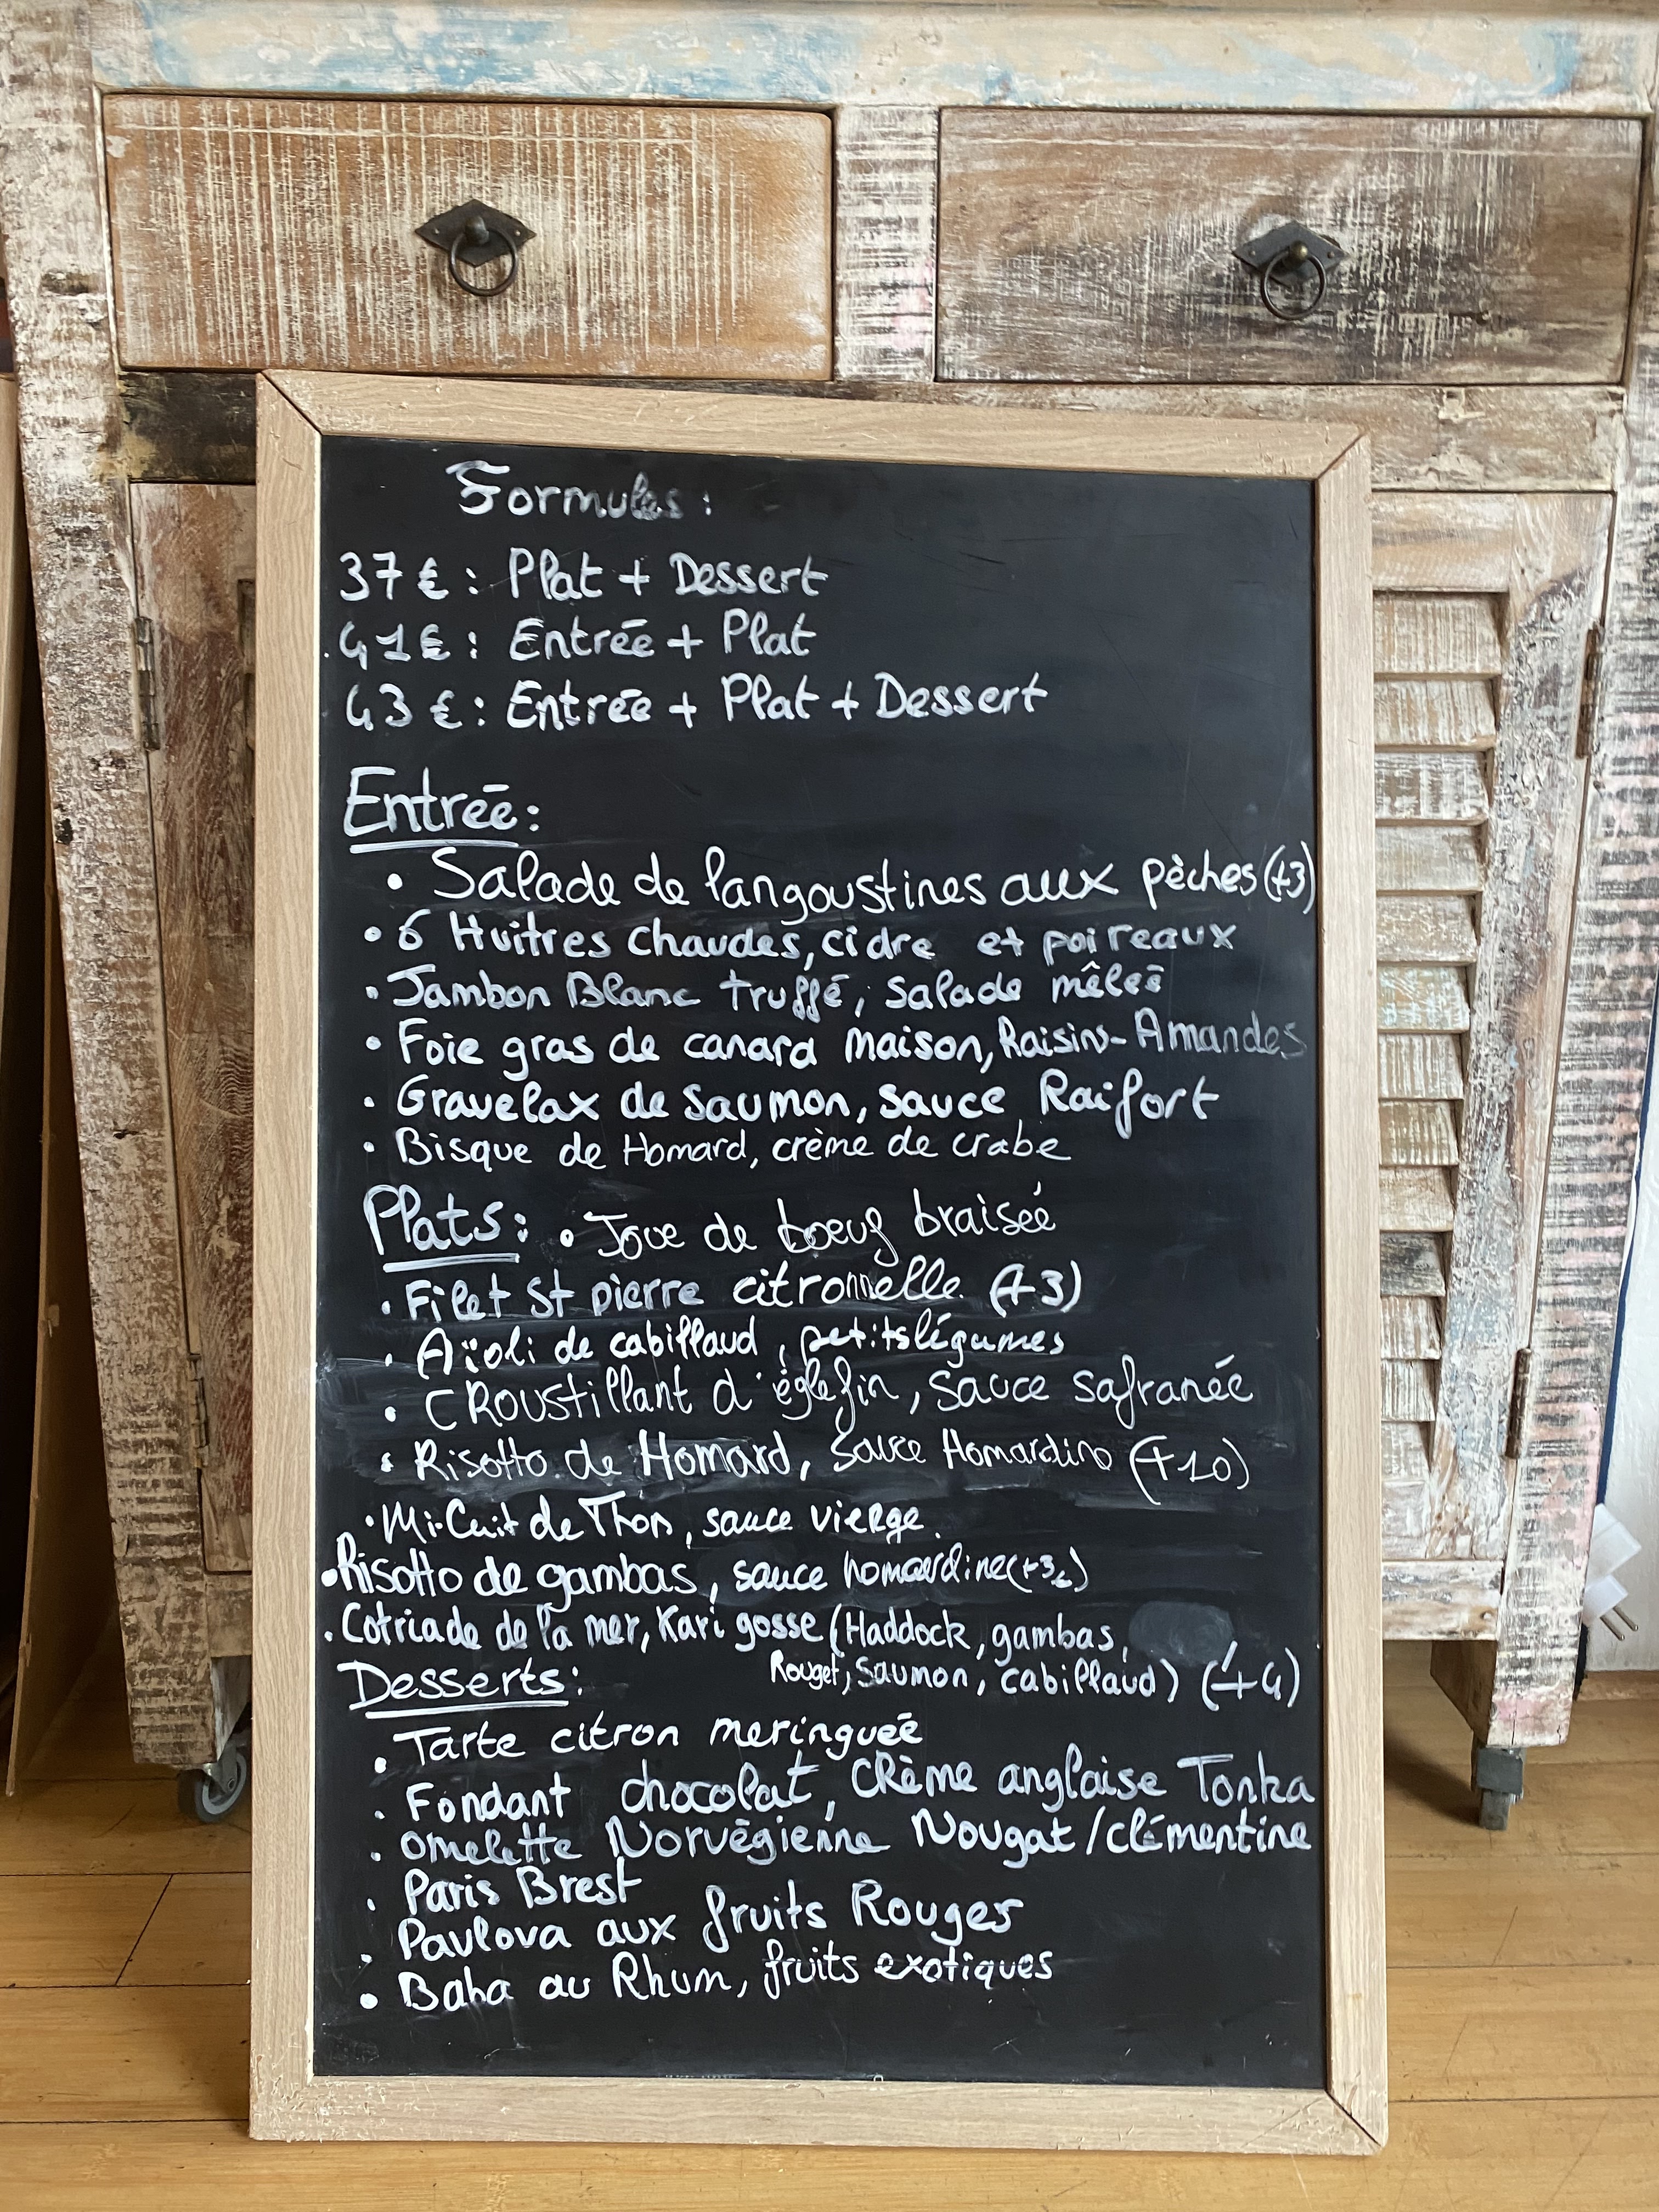 Formules :
37 € : Plat + Dessert
41 € : Entrée + Plat
43 € : Entrée + Plat + Dessert
Entrée :
• Salade de langoustines aux pèches (+3)
• 6 Huitres chaudes, cidre et poireaux
• Jambon Blanc truffé, salade mêlée
• Foie gras de canard maison, Raisins-Amandes
• Gravelax de saumon, sauce Raifort
• Bisque de Homard, crème de crabe
Plats : • Joue de boeuf braisée
• Filet St pierre citronnelle (+3)
• Aïoli de cabillaud, petits légumes
• CRoustillant d'églefin, sauce safranée
• Risotto de Homard, sauce Homardine (+10)
• Mi-Cuit de Thon, sauce vierge.
• Risotto de gambas, sauce homardine (+3€)
• Cotriade de la mer, Kari gosse (Haddock, gambas,
Rouget, saumon, cabillaud) (+4)
Desserts :
• Tarte citron meringuée
• Fondant chocolat, crème anglaise Tonka
• Omelette Norvégienne Nougat/clémentine
• Paris Brest
• Pavlova aux fruits Rouges
• Baba au Rhum, fruits exotiques